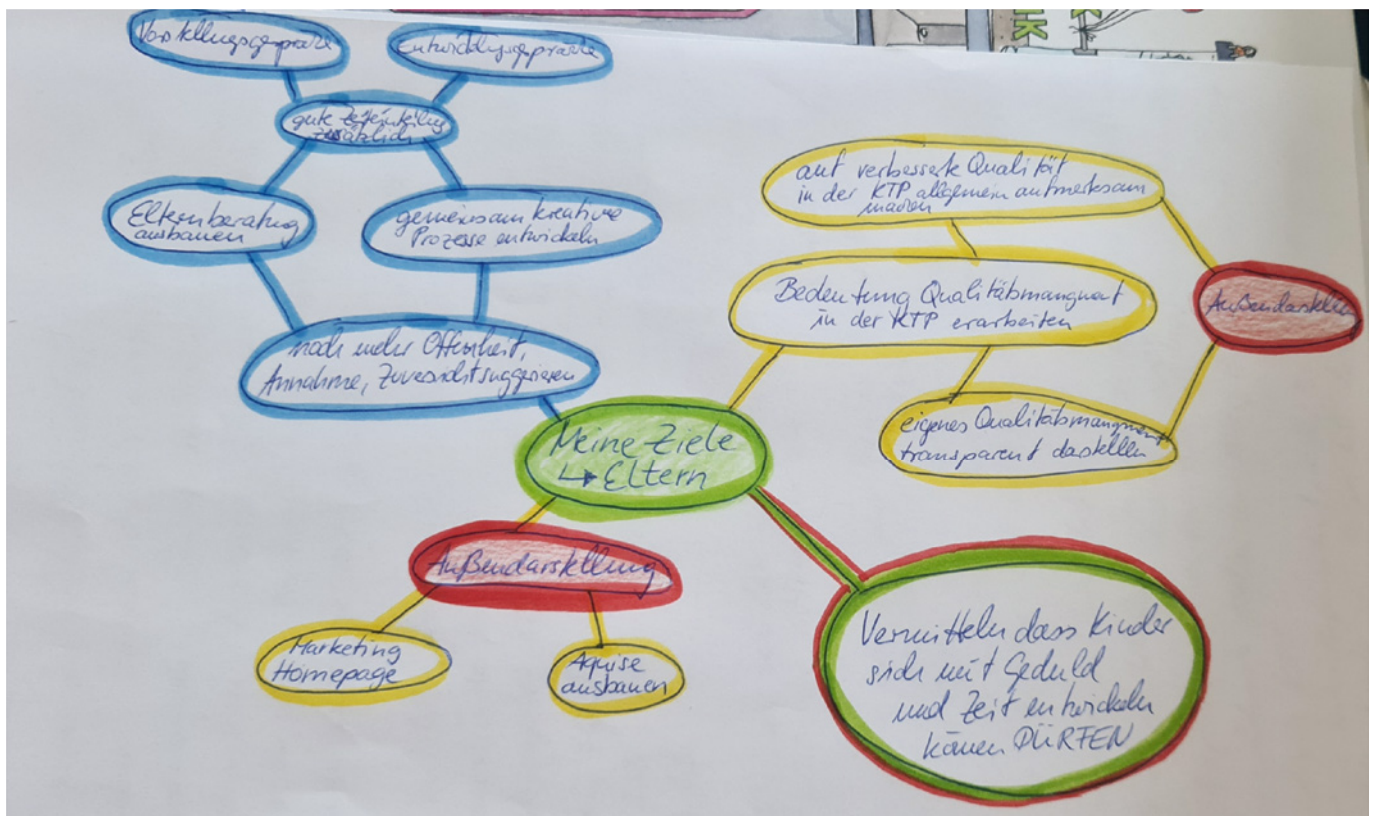 Vorstellungsgespräche
Entwicklungsgespräche
gute Zeiteinteilung
zusätzlich
Elternberatung
ausbauen
gemeinsam kreative
Prozesse entwickeln
noch mehr Offenheit,
Annahme, Zuversicht suggerieren
Meine Ziele
↳ Eltern
auf verbesserte Qualität
in der KTP allgemein aufmerksam
machen
Bedeutung Qualitätsmangment
in der KTP erarbeiten
Außendarstellung
eigenes Qualitätsmangment
transparent darstellen
Außendarstellung
Marketing
Homepage
Aquise
ausbauen
Vermitteln dass Kinder
sich mit Geduld
und Zeit entwickeln
können DÜRFEN